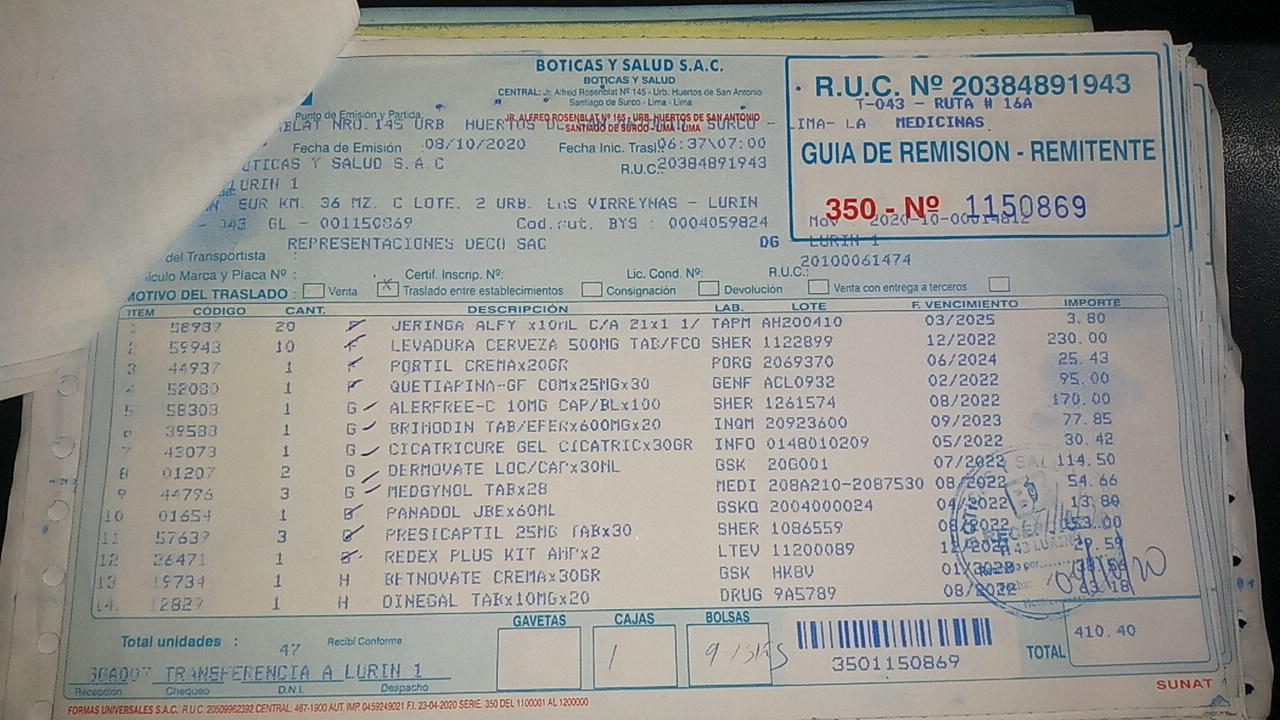 BOTICAS Y SALUD S.A.C.
BOTICAS Y SALUD
CENTRAL: Jr. Alfred Rosenblat Nº 145 - Urb. Huertos de San Antonio
Santiago de Surco - Lima - Lima
JR. ALFRED ROSENBLAT Nº 165 - URB. HUERTOS DE SAN ANTONIO
SANTIAGO DE SURCO - LIMA - LIMA
R.U.C. Nº 20384891943
T-043 - RUTA # 16A
MEDICINAS
GUIA DE REMISION - REMITENTE
350 - Nº 1150869
Punto de Emisión y Partida
BLAT NRO. 145 URB HUERTOS DE SURCO - LIMA- LA
Fecha de Emisión :08/10/2020 Fecha Inic. Trasl. 06:37\07:00
BOTICAS Y SALUD S.A.C R.U.C.: 20384891943
LURIN 1
SUR KM. 36 MZ. C LOTE. 2 URB. LAS VIRREYNAS - LURIN
043 GL - 001150869 Cod.rut. BYS : 0004059824
REPRESENTACIONES DECO SAC DG LURIN 1
del Transportista : 20100061474
Vehículo Marca y Placa Nº : Certif. Inscrip. Nº: Lic. Cond. Nº: R.U.C.:
MOTIVO DEL TRASLADO : Venta X Traslado entre establecimientos Consignación Devolución Venta con entrega a terceros
ITEM CÓDIGO CANT. DESCRIPCIÓN LAB. LOTE F. VENCIMIENTO IMPORTE
1 58987 20 F JERINGA ALFY x10ML C/A 21x1 1/ TAPM AH200410 03/2025 3.80
2 59943 10 F LEVADURA CERVEZA 500MG TAB/FCO SHER 1122899 12/2022 230.00
3 44937 1 F PORTIL CREMAx20GR PORG 2069370 06/2024 25.43
4 52080 1 F QUETIAPINA-GF COMx25MGx30 GENF ACL0932 02/2022 95.00
5 58308 1 G ALERFREE-C 10MG CAP/BLx100 SHER 1261574 08/2022 170.00
6 39588 1 G BRIMODIN TAB/EFERx600MGx20 INQM 20923600 09/2023 77.85
7 43073 1 G CICATRICURE GEL CICATRICx30GR INFO 0148010209 05/2022 30.42
8 01207 2 G DERMOVATE LOC/CAPx30ML GSK 20G001 07/2022 114.50
9 44796 3 G MEDGYNOL TABx28 MEDI 208A210-2087530 08/2022 54.66
10 01654 1 B PANADOL JBEx60ML GSKO 2004000024 04/2022 13.80
11 57639 3 B PRESICAPTIL 25MG TABx30 SHER 1086559 08/2022 153.00
12 26471 1 B REDEX PLUS KIT AMPx2 LTEV 11200089 29.59
13 19734 1 H BETNOVATE CREMAx30GR GSK HK8V
14 12827 1 H DINEGAL TABx10MGx20 DRUG 9A5789 08/2022 43.18
Total unidades : 47 Recibí Conforme
GAVETAS CAJAS BOLSAS
1
3501150869
TOTAL 410.40
TRANSFERENCIA A LURIN 1
Recepción Chequeo D.N.I. Despacho
SUNAT
FORMAS UNIVERSALES S.A.C. R.U.C. 20509962392 CENTRAL: 467-1900 AUT. IMP. 0459249021 F.I. 23-04-2020 SERIE: 350 DEL 1100001 AL 1200000